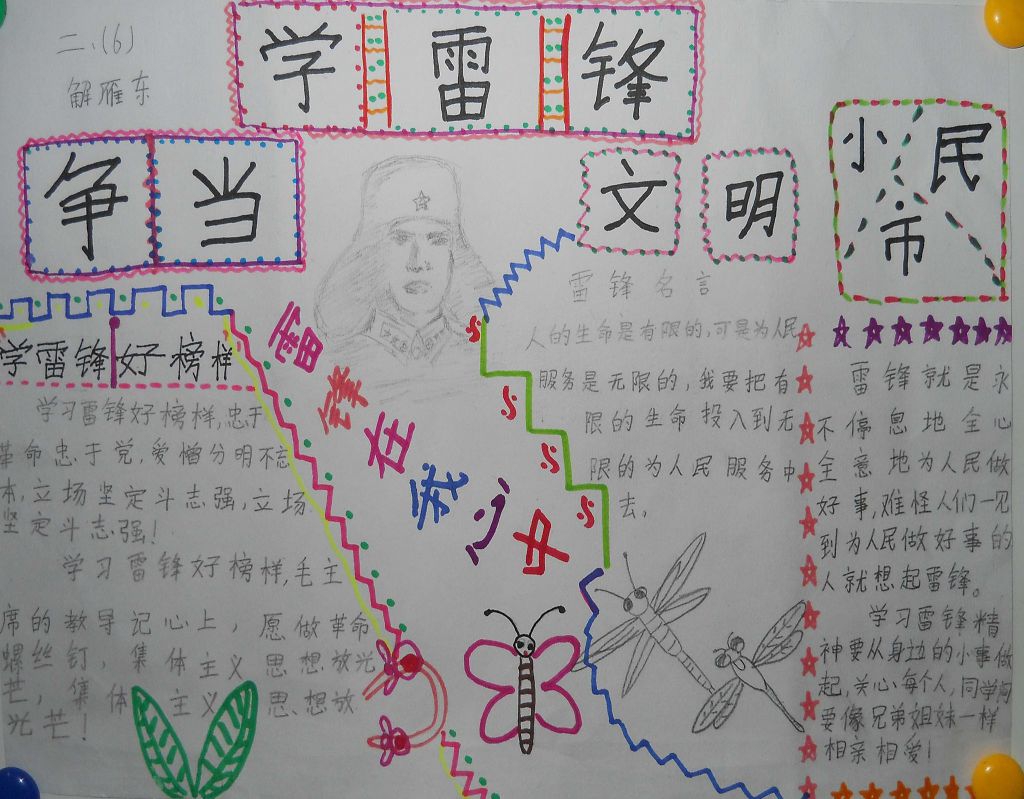 二、(6)
解雁东
学雷锋
争当
文明
小市民
雷锋在我心中
学雷锋好榜样
学习雷锋好榜样,忠于
革命忠于党,爱憎分明不忘
本,立场坚定斗志强,立场
坚定斗志强!
学习雷锋好榜样,毛主
席的教导记心上,愿做革命
螺丝钉,集体主义思想放光
芒,集体主义思想放
光芒!
雷锋名言
人的生命是有限的,可是为人民
服务是无限的,我要把有
限的生命投入到无
限的为人民服务中
去。
雷锋就是永
不停息地全心
全意地为人民做
好事,难怪人们一见
到为人民做好事的
人就想起雷锋。
学习雷锋精
神要从身边的小事做
起,关心每个人,同学间
要像兄弟姐妹一样
相亲相爱!